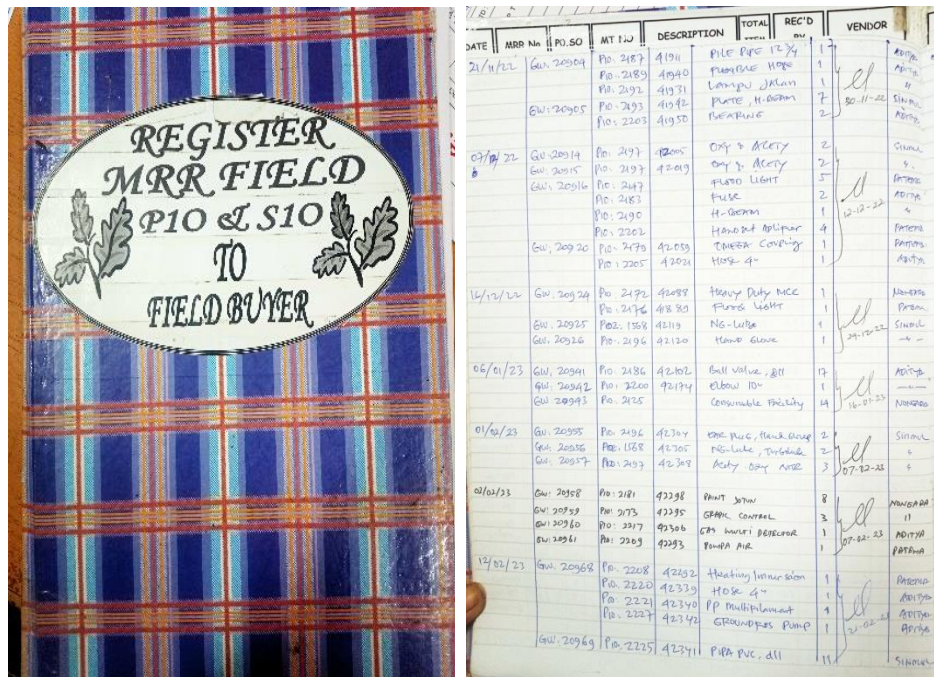 REGISTER
MRR FIELD
P10 & S10
TO
FIELD BUYER
DATE MRR No PO.SO MT NO DESCRIPTION TOTAL ITEM REC'D BY VENDOR
21/11/22 GW. 20904 P10. 2187 41911 PILE PIPE 12 3/4 1 ADITYA
P10. 2189 41940 FLEXIBLE HOSE 1 ADITYA
P10. 2192 41931 LAMPU JALAN 1 "
GW. 20905 P10. 2193 41942 PLATE, H-BEAM 7 30-11-22 SINDUL
P10. 2203 41950 BEARING 2 ADITYA
22 GW. 20914 P10. 2197 42005 OXY & ACETY 2 SINDUL
GW. 20915 P10. 2197 42019 OXY & ACETY 2 "
GW. 20916 P10. 2147 FLOOD LIGHT 5 PATERA
P10. 2183 FUSE 2 ADITYA
P10. 2190 H-BEAM 1 12-12-22 "
P10. 2202 4 PATERA
GW. 20920 P10. 2179 42059 OMEGA COUPLING 1 PATERA
P10. 2205 42021 HOSE 4" 1 ADITYA
14/12/22 GW. 20924 P10. 2172 42088 Heavy Duty MCC 1 NONGARA
P10. 2176 41889 FLOOD LIGHT 1 PATERA
GW. 20925 P02. 1568 42119 NG-Lube 1 SINDUL
GW. 20926 P10. 2196 42120 Hand Glove 1 29-12-22 - " -
06/01/23 GW. 20941 P10. 2186 42102 Ball Valve, dll 17 ADITYA
GW. 20942 P10. 2200 42174 elbow 10" 1 - " -
GW 20943 P10. 2125 Consumable Facility 14 16-01-23 NONGARA
01/02/23 GW. 20955 P10. 2196 42304 EAR PLUG, Hand Glove 2 SINDUL
GW. 20956 P02. 1568 42305 NG-Lube, 2 "
GW. 20957 P10. 2197 42308 Acety Oxy 3 07-02-23 "
02/02/23 GW. 20958 P10. 2181 42298 PAINT JOTUN 8 NONGARA
GW. 20959 P10. 2173 42295 GRAPIC CONTROL 3 "
GW. 20960 P10. 2217 42306 GAS MULTI DETECTOR 1 07-02-23 ADITYA
GW. 20961 P10. 2209 42293 POMPA AIR 1 PATERA
12/02/23 GW. 20968 P10. 2208 42292 Heating Immersion 1 PATERA
P10. 2220 42339 HOSE 4" 1 ADITYA
P10. 2221 42340 PP Multifilament 1 ADITYA
P10. 2227 42342 PUMP 1 21-02-23 ADITYA
GW. 20969 P10. 2225 42341 PIPA PVC, dll 11 SINDUL